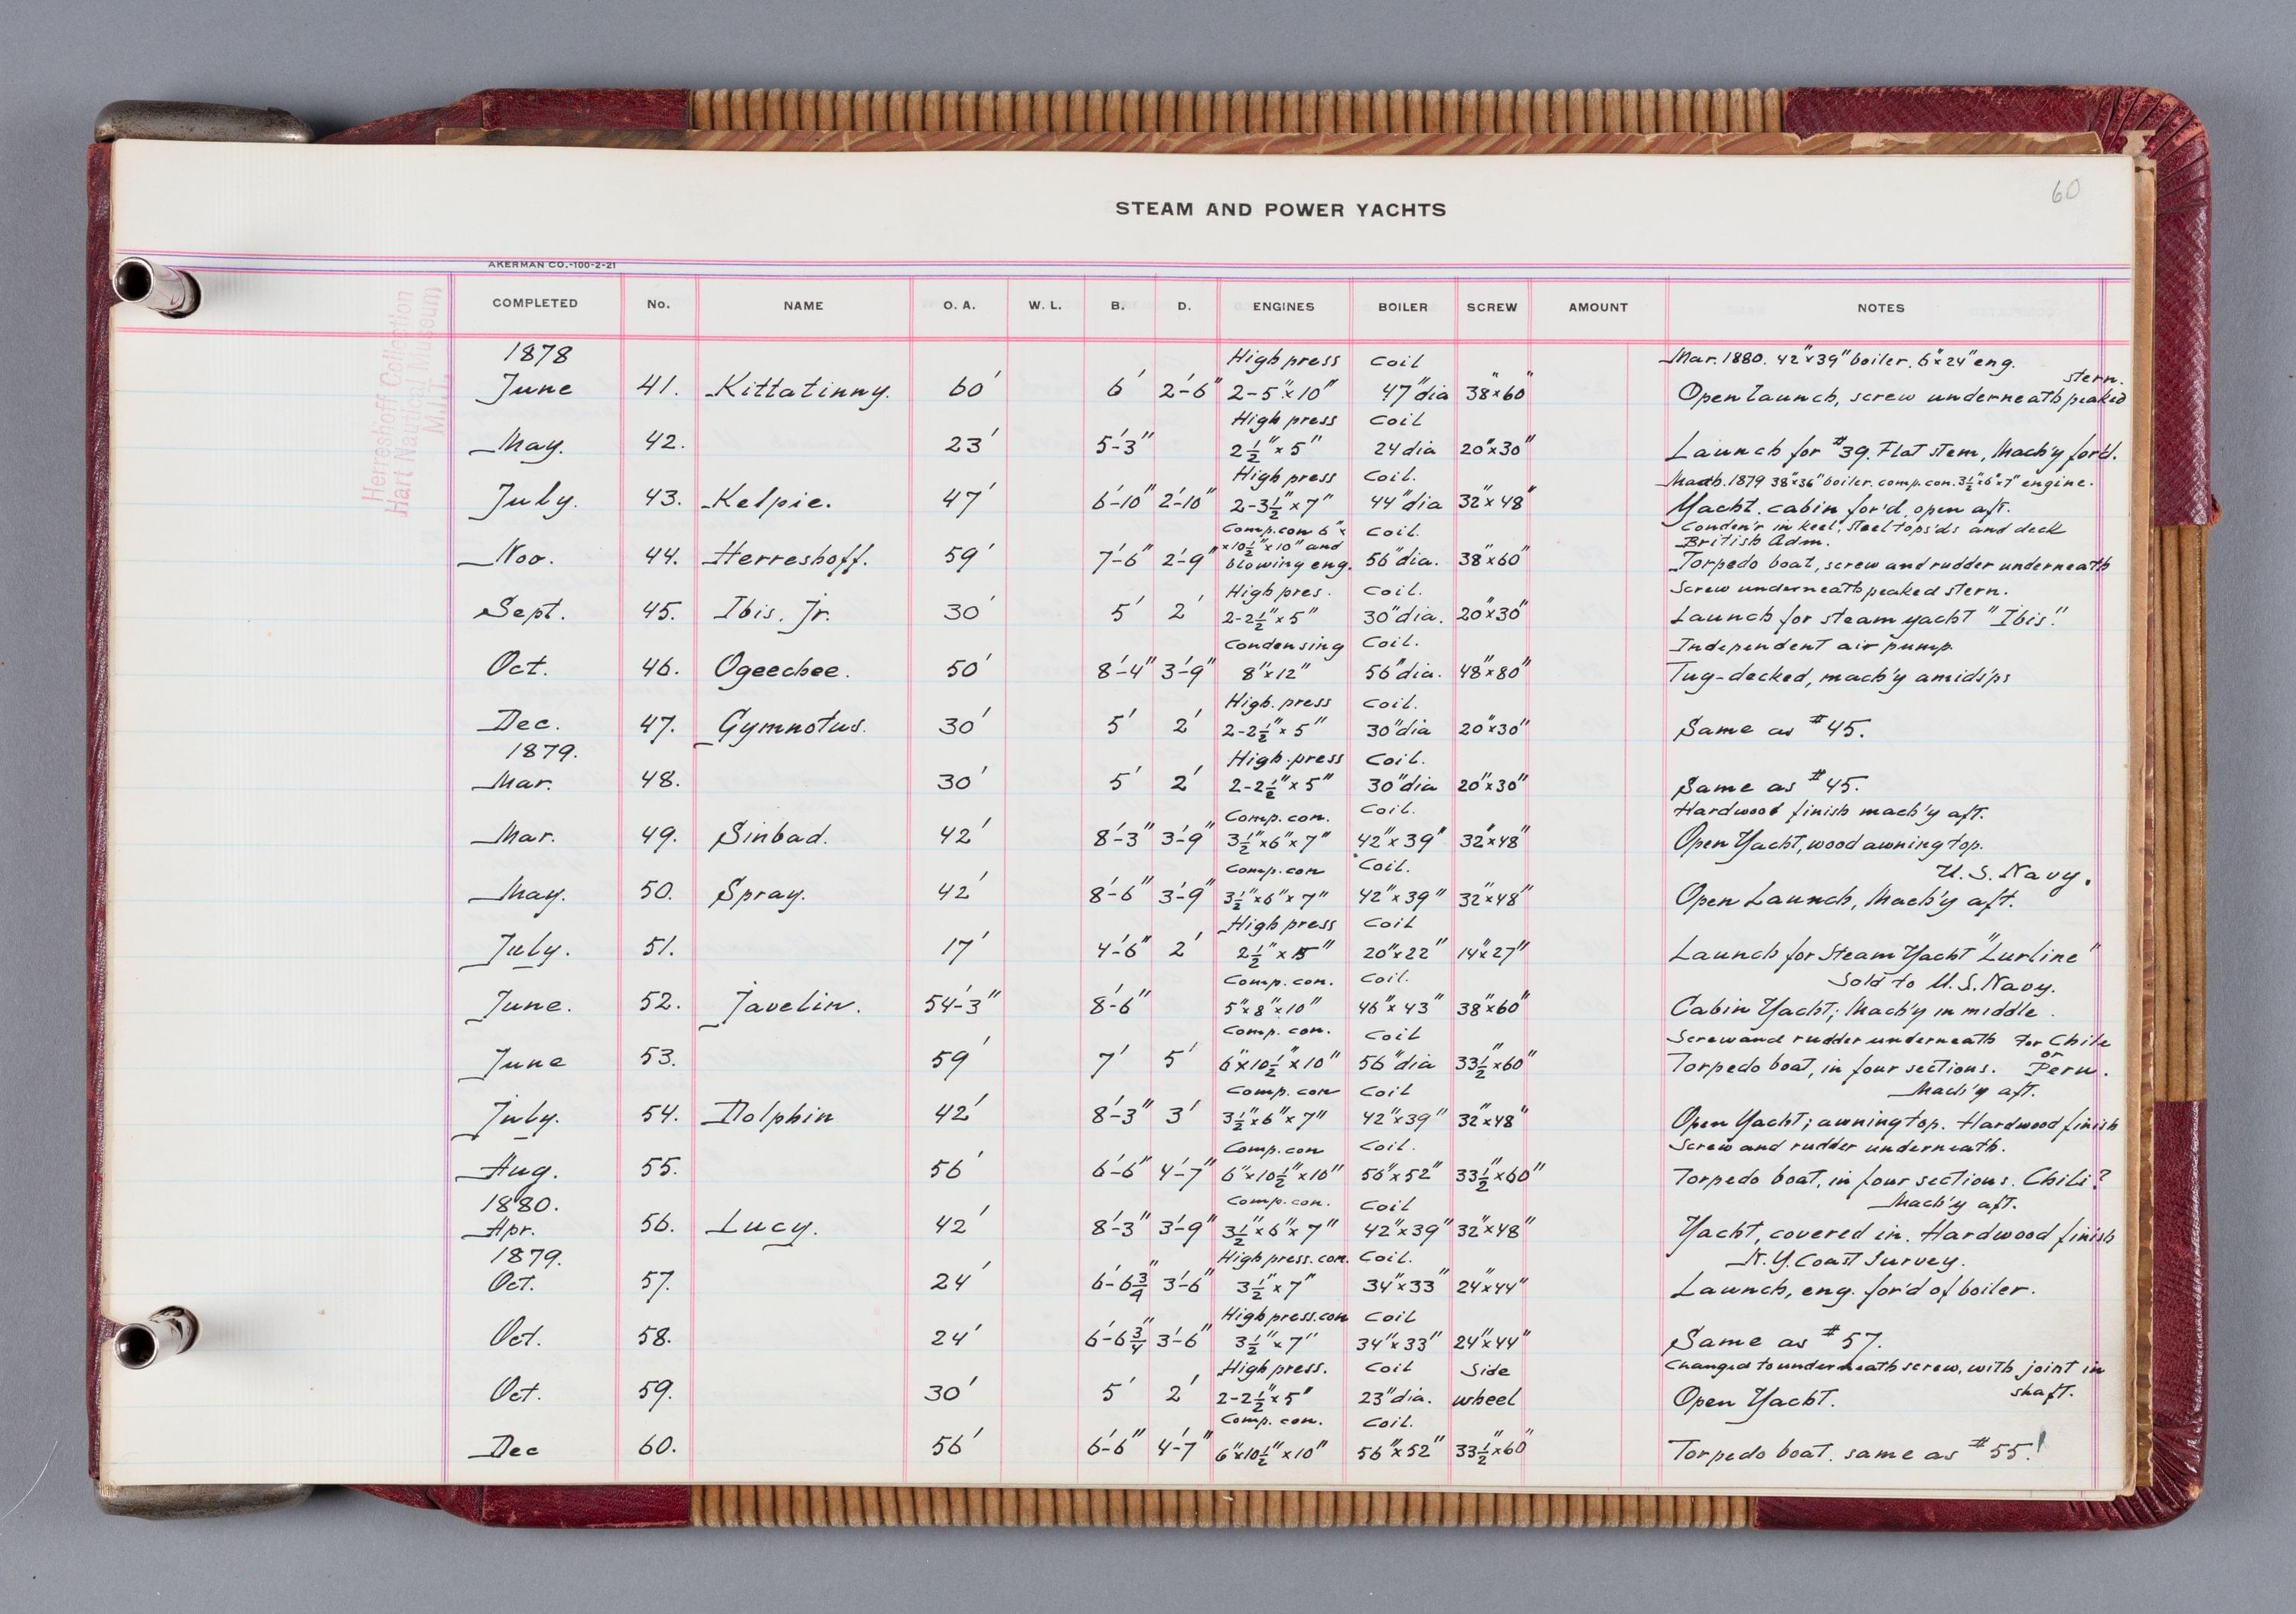 60
STEAM AND POWER YACHTS
AKERMAN CO.-100-2-21
Herreshoff Collection
Hart Nautical Museum
M.I.T.
COMPLETED No. NAME O. A. W. L. B. D. ENGINES BOILER SCREW AMOUNT NOTES
1878 High press Coil Mar. 1880. 42"x39" boiler. 6"x24" eng.
stern.
June 41. Kittatinny. 60' 6' 2'-6" 2-5"x10" 47" dia 38"x60" Open launch, screw underneath peaked
High press Coil
May. 42. 23' 5'-3" 2½"x5" 24 dia 20"x30" Launch for #39. Flat stem, Mach'y for'd.
High press Coil. March. 1879 38"x36" boiler. comp. con. 3½"x6"x7" engine.
July. 43. Kelpie. 47' 6'-10" 2'-10" 2-3½"x7" 44" dia 32"x48" Yacht. cabin for'd, open aft.
Comp. con 6"x Coil. Conden'r in keel, steel tops'ds and deck
x10½"x10" and British Adm.
Nov. 44. Herreshoff. 59' 7'-6" 2'-9" blowing eng. 56" dia. 38"x60" Torpedo boat, screw and rudder underneath
High pres. Coil. Screw underneath peaked stern.
Sept. 45. Ibis. Jr. 30' 5' 2' 2-2½"x5" 30" dia. 20"x30" Launch for steam yacht "Ibis."
Condensing Coil. Independent air pump.
Oct. 46. Ogeechee. 50' 8'-4" 3'-9" 8"x12" 56" dia. 48"x80" Tug-decked, mach'y amids'ps
High. press Coil.
Dec. 47. Gymnotus. 30' 5' 2' 2-2½"x5" 30" dia 20"x30" Same as #45.
1879. High. press Coil.
Mar. 48. 30' 5' 2' 2-2½"x5" 30" dia 20"x30" Same as #45.
Comp. con. Coil. Hardwood finish mach'y aft.
Mar. 49. Sinbad. 42' 8'-3" 3'-9" 3½"x6"x7" 42"x39" 32"x48" Open Yacht, wood awning top.
Comp. con Coil. U. S. Navy.
May. 50. Spray. 42' 8'-6" 3'-9" 3½"x6"x7" 42"x39" 32"x48" Open Launch, Mach'y aft.
High press Coil
July. 51. 17' 4'-6" 2' 2½"x5" 20"x22" 14"x27" Launch for Steam Yacht "Lurline"
Comp. con. Coil. Sold to U. S. Navy.
June. 52. Javelin. 54'-3" 8'-6" 5"x8"x10" 46"x43" 38"x60" Cabin Yacht; Mach'y in middle.
Comp. con. Coil Screw and rudder underneath For Chile
or
June 53. 59' 7' 5' 6"x10½"x10" 56" dia 33½"x60" Torpedo boat, in four sections. Peru.
Comp. con Coil Mach'y aft.
July. 54. Dolphin 42' 8'-3" 3' 3½"x6"x7" 42"x39" 32"x48" Open Yacht; awning top. Hardwood finish
Comp. con Coil. Screw and rudder underneath.
Aug. 55. 56' 6'-6" 4'-7" 6"x10½"x10" 56"x52" 33½"x60" Torpedo boat, in four sections. Chili?
1880. Comp. con. Coil Mach'y aft.
Apr. 56. Lucy. 42' 8'-3" 3'-9" 3½"x6"x7" 42"x39" 32"x48" Yacht, covered in. Hardwood finish
1879. High press. con. Coil. N. Y. Coast Survey.
Oct. 57. 24' 6'-6¾" 3'-6" 3½"x7" 34"x33" 24"x44" Launch, eng. for'd of boiler.
High press. con Coil
Oct. 58. 24' 6'-6¾" 3'-6" 3½"x7" 34"x33" 24"x44" Same as #57.
High press. Coil Side Changed to underneath screw, with joint in
shaft.
Oct. 59. 30' 5' 2' 2-2½"x5" 23" dia. wheel Open Yacht.
Comp. con. Coil.
Dec 60. 56' 6'-6" 4'-7" 6"x10½"x10" 56"x52" 33½"x60" Torpedo boat. same as #55!